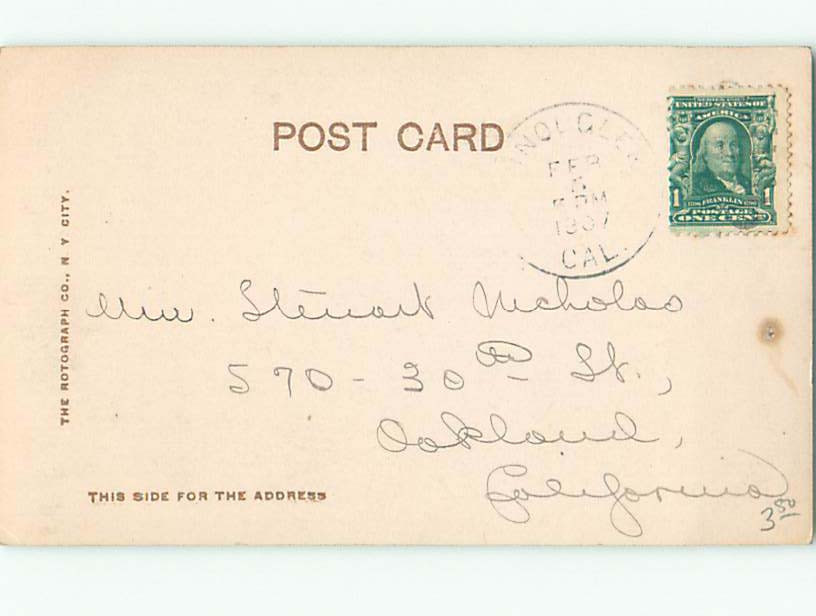 POST CARD
SERIES 1902
UNITED STATES OF
AMERICA
1 FRANKLIN 1
POSTAGE
ONE CENT
FEB
5 PM
1907
CAL.
THE ROTOGRAPH CO., N Y CITY.
Stewart Nicholas
570-30th St.,
Oakland,
California
THIS SIDE FOR THE ADDRESS
3.50